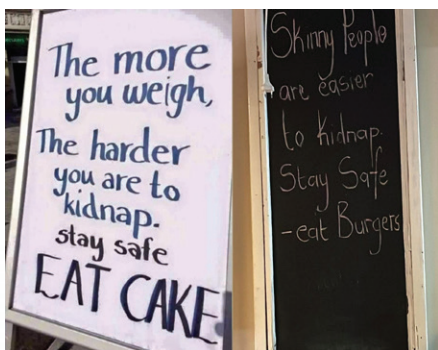 The more
you weigh,
The harder
you are to
kidnap.
stay safe
EAT CAKE
Skinny People
are easier
to kidnap.
Stay Safe
-eat Burgers